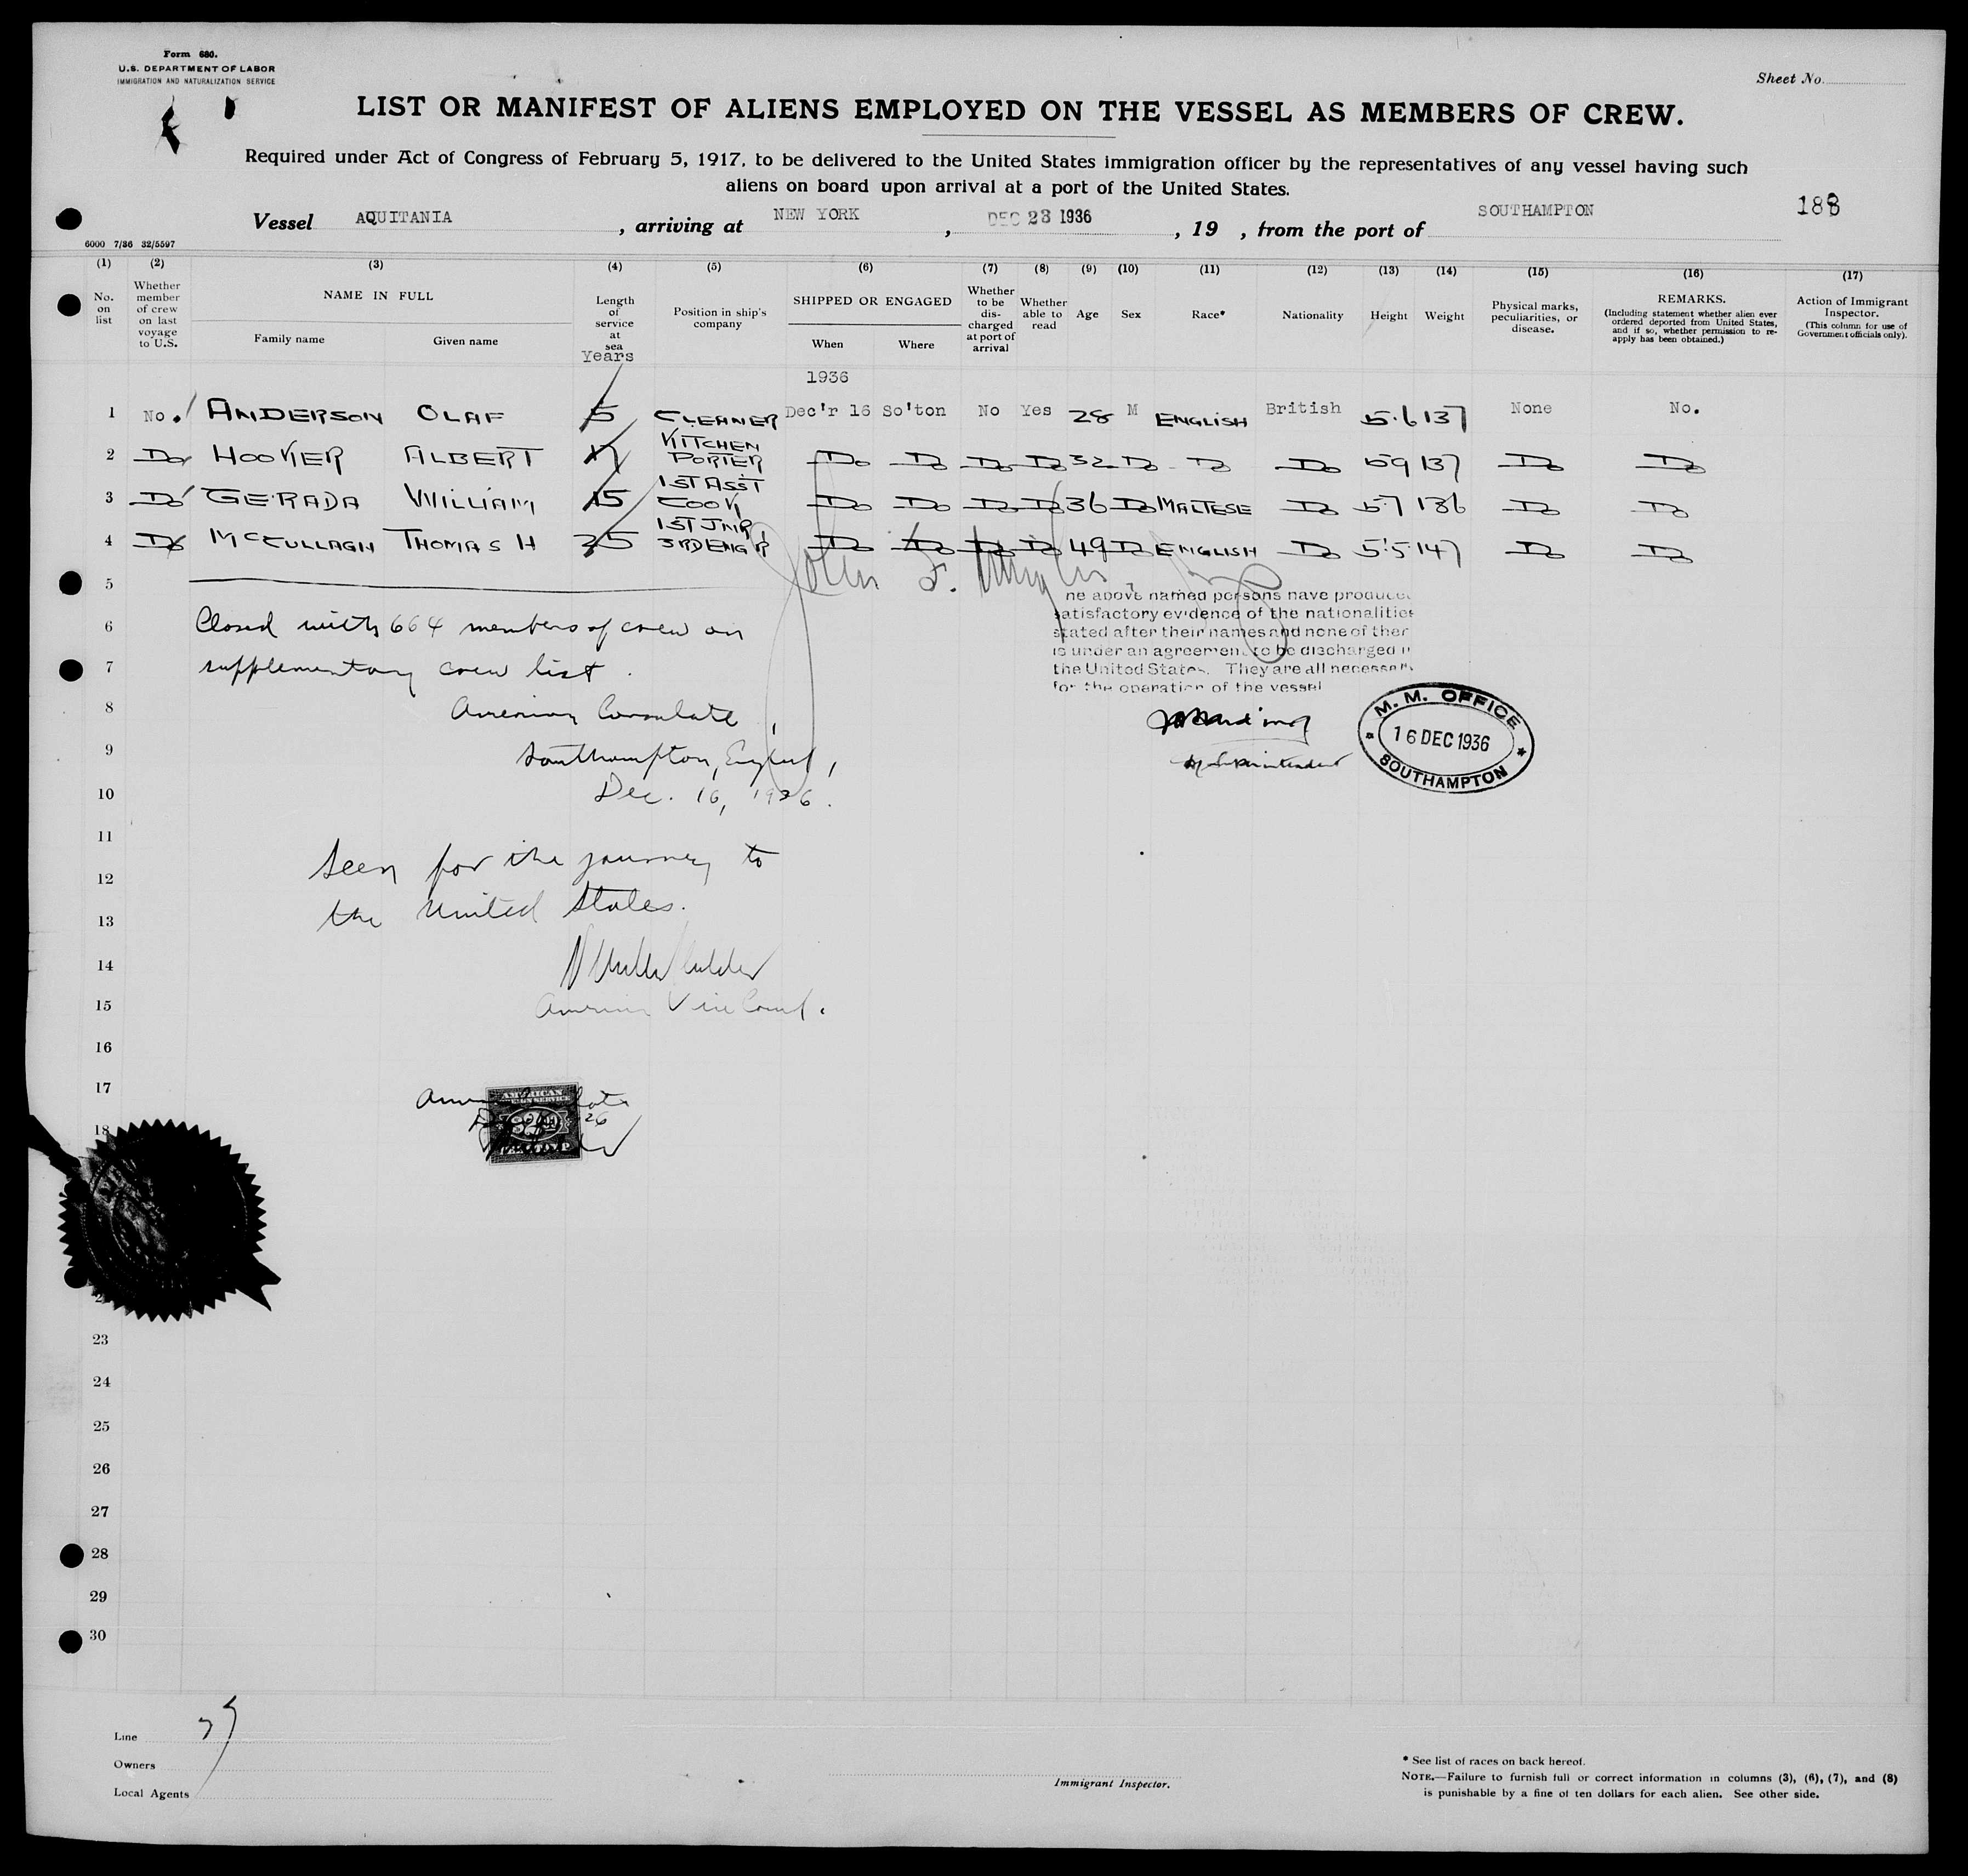 Form 680.
U.S. DEPARTMENT OF LABOR
IMMIGRATION AND NATURALIZATION SERVICE
Sheet No.
LIST OR MANIFEST OF ALIENS EMPLOYED ON THE VESSEL AS MEMBERS OF CREW.
Required under Act of Congress of February 5, 1917, to be delivered to the United States immigration officer by the representatives of any vessel having such
aliens on board upon arrival at a port of the United States.
Vessel AQUITANIA, arriving at NEW YORK, DEC 23 1936, 19 , from the port of SOUTHAMPTON
6000 7/36 32/5597
(1) (2) (3) (4) (5) (6) (7) (8) (9) (10) (11) (12) (13) (14) (15) (16) (17)
No. on list
Whether member of crew on last voyage to U.S.
NAME IN FULL
Family name Given name
Length of service at sea
Years
Position in ship's company
SHIPPED OR ENGAGED
When Where
Whether to be discharged at port of arrival
Whether able to read
Age
Sex
Race*
Nationality
Height
Weight
Physical marks, peculiarities, or disease.
REMARKS.
(Including statement whether alien ever ordered deported from United States, and if so, whether permission to re-apply has been obtained.)
Action of Immigrant Inspector.
(This column for use of Government officials only).
1936
1 No. ANDERSON OLAF 5 CLEANER Dec'r 16 So'ton No Yes 28 M ENGLISH British 5.6 137 None No.
2 Do HOOVIER ALBERT 17 KITCHEN PORTER Do Do Do Do 32 Do Do Do 5 9 137 Do Do
3 Do GERADA WILLIAM 15 1ST ASST COOK Do Do Do Do 36 Do MALTESE Do 5.7 136 Do Do
4 Do McCULLAGH THOMAS H 25 1ST JNR 3RD ENGR Do Do Do Do 49 Do ENGLISH Do 5.5 147 Do Do
5
6
7
8
9
10
11
12
13
14
15
16
17
18
23
24
25
26
27
28
29
30
Closed with 664 members of crew on
supplementary crew list.
American Consulate,
Southampton, England,
Dec. 16, 1936.
ne above named persons have produce
satisfactory evidence of the nationalities
stated after their names and none of ther
is under an agreement to be discharged i
the United States. They are all necessar
for the operation of the vessel
Superintendent
M. M. OFFICE
16 DEC 1936
SOUTHAMPTON
Seen for the journey to
the United States.
American Vice Consul.
AMERICAN
Line
Owners
Local Agents
Immigrant Inspector.
* See list of races on back hereof.
NOTE.—Failure to furnish full or correct information in columns (3), (6), (7), and (8)
is punishable by a fine of ten dollars for each alien. See other side.